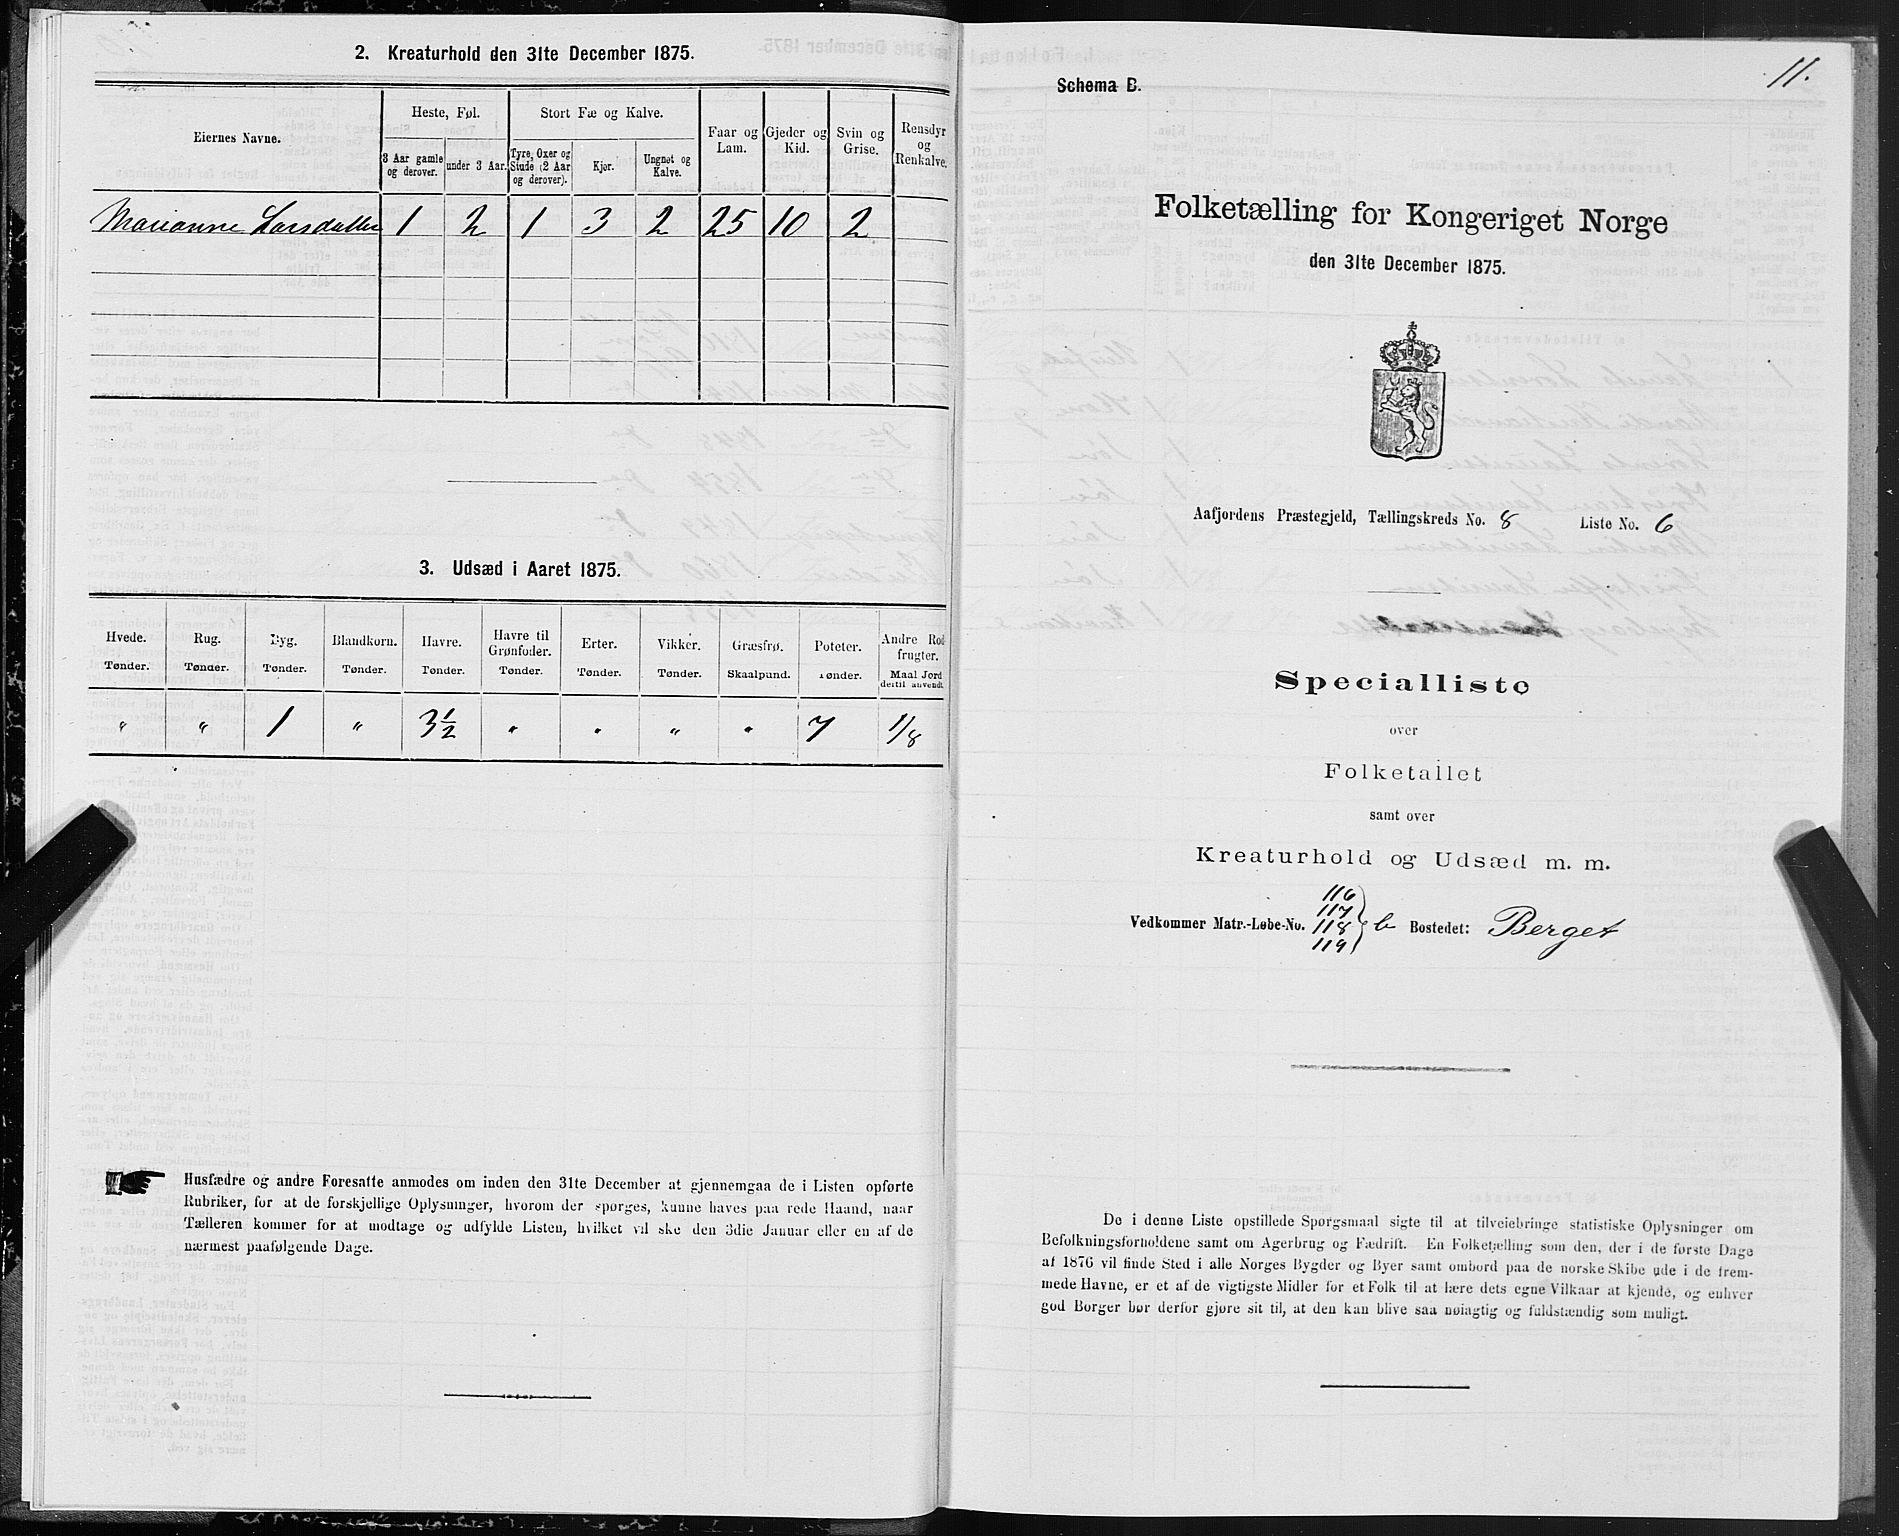 2. Kreaturhold den 31te December 1875.
Eiernes Navne.
Heste, Føl.
Stort Fæ og Kalve.
Faar og Lam.
Gjeder og Kid.
Svin og Grise.
Rensdyr og Renkalve.
3 Aar gamle og derover.
under 3 Aar.
Tyre, Oxer og Stude (2 Aar og derover).
Kjør.
Ungnøt og Kalve.
Marianne Larsdatter 1 2 1 3 2 25 10 2
3. Udsæd i Aaret 1875.
Hvede. Rug. Byg. Blandkorn. Havre. Havre til Grønfoder. Erter. Vikker. Græsfrø. Poteter. Andre Rodfrugter.
Tønder. Tønder. Tønder. Tønder. Tønder. Tønder. Tønder. Tønder. Skaalpund. Tønder. Maal Jord dertil anvendt.
" " 1 " 3½ " " " " 7 1/8
Husfædre og andre Foresatte anmodes om inden den 31te December at gjennemgaa de i Listen opførte
Rubriker, for at de forskjellige Oplysninger, hvorom der spørges, kunne haves paa rede Haand, naar
Tælleren kommer for at modtage og udfylde Listen, hvilket vil ske den 3die Januar eller en af de
nærmest paafølgende Dage.
11.
Schema B.
Folketælling for Kongeriget Norge
den 31te December 1875.
Aafjordens Præstegjeld, Tællingskreds No. 8 Liste No. 6
Specialliste
over
Folketallet
samt over
Kreaturhold og Udsæd m. m.
116
117
Vedkommer Matr.-Løbe-No. 118 b Bostedet: Berget
119
De i denne Liste opstillede Spørgsmaal sigte til at tilveiebringe statistiske Oplysninger om
Befolkningsforholdene samt om Agerbrug og Fædrift. En Folketælling som den, der i de første Dage
af 1876 vil finde Sted i alle Norges Bygder og Byer samt ombord paa de norske Skibe ude i de frem-
mede Havne, er et af de vigtigste Midler for et Folk til at lære dets egne Vilkaar at kjende, og enhver
god Borger bør derfor gjøre sit til, at den kan blive saa nøiagtig og fuldstændig som muligt.